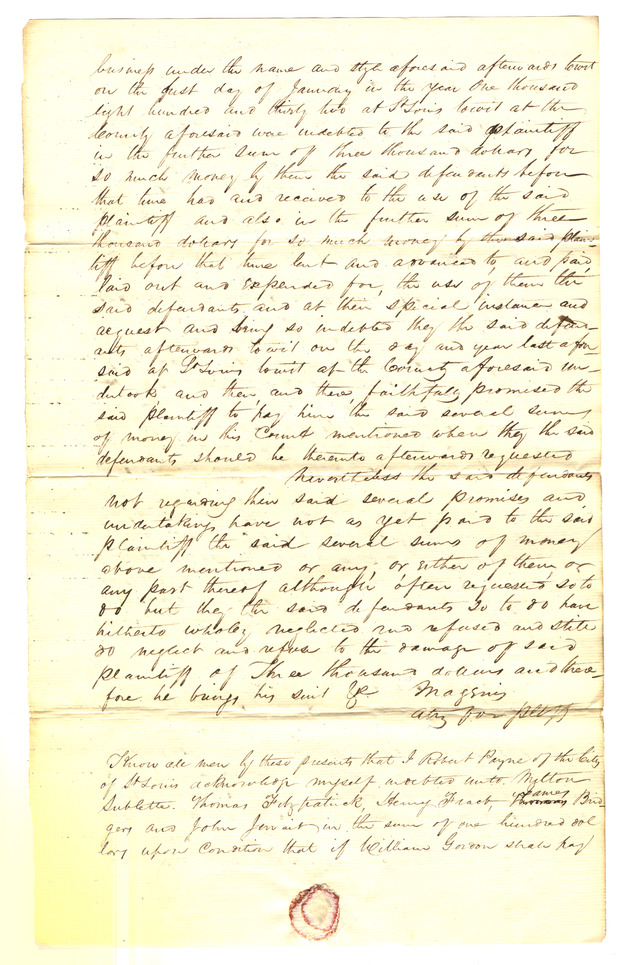 business under the name and style aforesaid afterwards towit
on the first day of January in the year One thousand
eight hundred and thirty two at St Louis towit at the
County aforesaid were indebted to the said plaintiff
in the further sum of three thousand dollars for
so much money by them the said defendants before
that time had and received to the use of the said
plaintiff and also in the further sum of three
thousand dollars for so much money by the said plain-
tiff before that time lent and advanced to, and paid,
laid out and expended for, the use of them the
said defendants and at their special instance and
request and being so indebted they the said defend-
ants afterwards towit on the day and year last afore
said at St Louis towit at the County aforesaid un-
dertook, and then, and there, faithfully promised the
said plaintiff to pay him the said several sums
of money in this Count mentioned when they the said
defendants should be thereunto afterwards requested
Nevertheless the said defendants
not regarding their said several promises and
undertakings have not as yet paid to the said
plaintiff the said several sums of money
above mentioned or any, or either of them or
any part thereof although often requested so to
do but they the said defendants so to do have
hitherto wholly neglected and refused and still
do neglect and refuse to the damage of said
plaintiff of Three thousand dollars and there-
fore he brings his suit &c Magenis
atty for pltff
Know all men by these presents that I Robert Payne of the City
of St Louis acknowledge myself indebted unto Milton
Sublette. Thomas Fitzpatrick, Henry Fraeb James Brid
gers and John Jervais in the sum of one hundred dol
lars upon Condition that if William Gordon shall pay